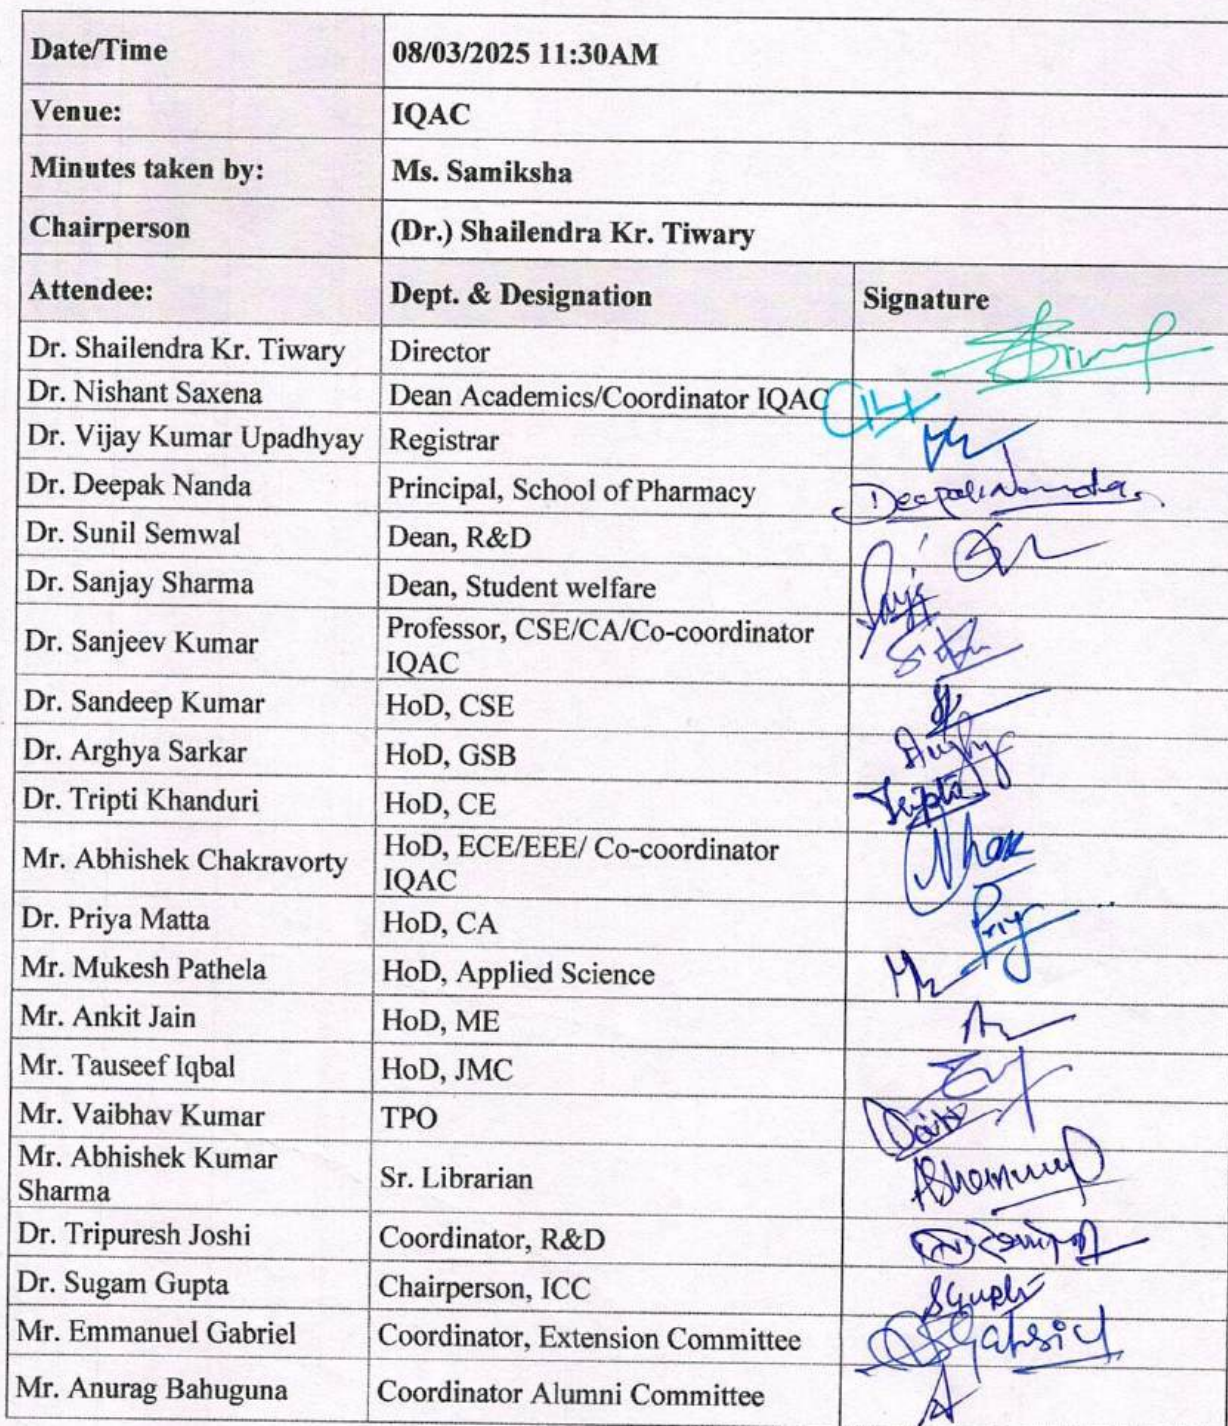 Date/Time 08/03/2025 11:30AM
Venue: IQAC
Minutes taken by: Ms. Samiksha
Chairperson (Dr.) Shailendra Kr. Tiwary
Attendee: Dept. & Designation Signature
Dr. Shailendra Kr. Tiwary Director
Dr. Nishant Saxena Dean Academics/Coordinator IQAC
Dr. Vijay Kumar Upadhyay Registrar
Dr. Deepak Nanda Principal, School of Pharmacy DeepakNanda
Dr. Sunil Semwal Dean, R&D
Dr. Sanjay Sharma Dean, Student welfare
Dr. Sanjeev Kumar Professor, CSE/CA/Co-coordinator
IQAC
Dr. Sandeep Kumar HoD, CSE
Dr. Arghya Sarkar HoD, GSB
Dr. Tripti Khanduri HoD, CE Tripti
Mr. Abhishek Chakravorty HoD, ECE/EEE/ Co-coordinator
IQAC
Dr. Priya Matta HoD, CA
Mr. Mukesh Pathela HoD, Applied Science
Mr. Ankit Jain HoD, ME
Mr. Tauseef Iqbal HoD, JMC
Mr. Vaibhav Kumar TPO
Mr. Abhishek Kumar
Sharma Sr. Librarian
Dr. Tripuresh Joshi Coordinator, R&D
Dr. Sugam Gupta Chairperson, ICC SGupta
Mr. Emmanuel Gabriel Coordinator, Extension Committee
Mr. Anurag Bahuguna Coordinator Alumni Committee